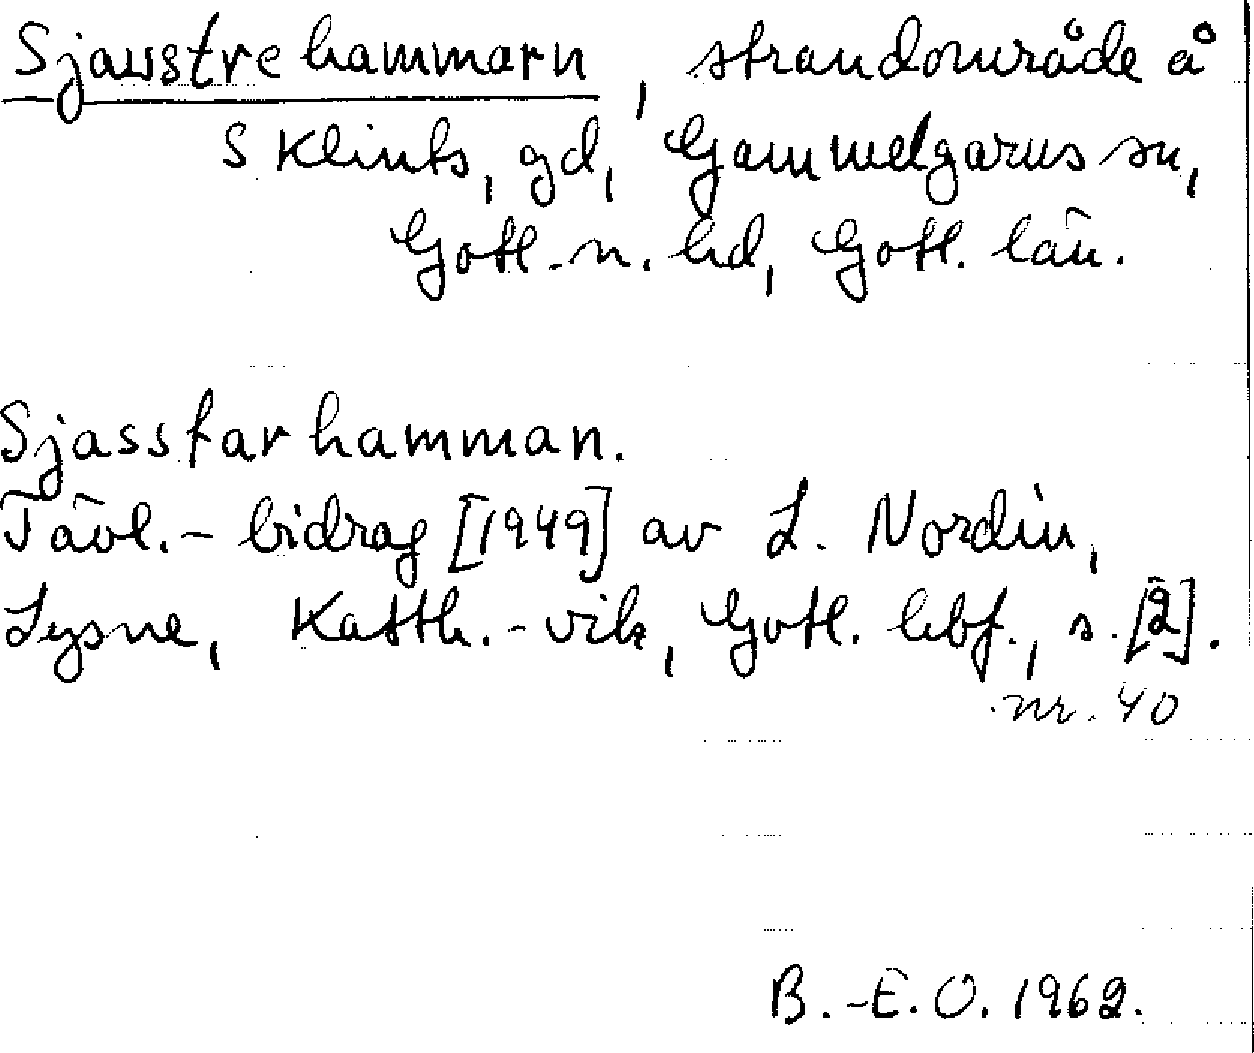 Sjaustrehammarn, strandområde å
S Klints, gd, Gammelgarns sn,
Gotl. n. hd, Gotl. län.
Sjasstarhamman.
Tävl.-bidrag [1949] av L. Nordin,
Sysne, Katth.-vik, Gotl. hbf., s. [2].
nr. 40
B.-E. O. 1962.